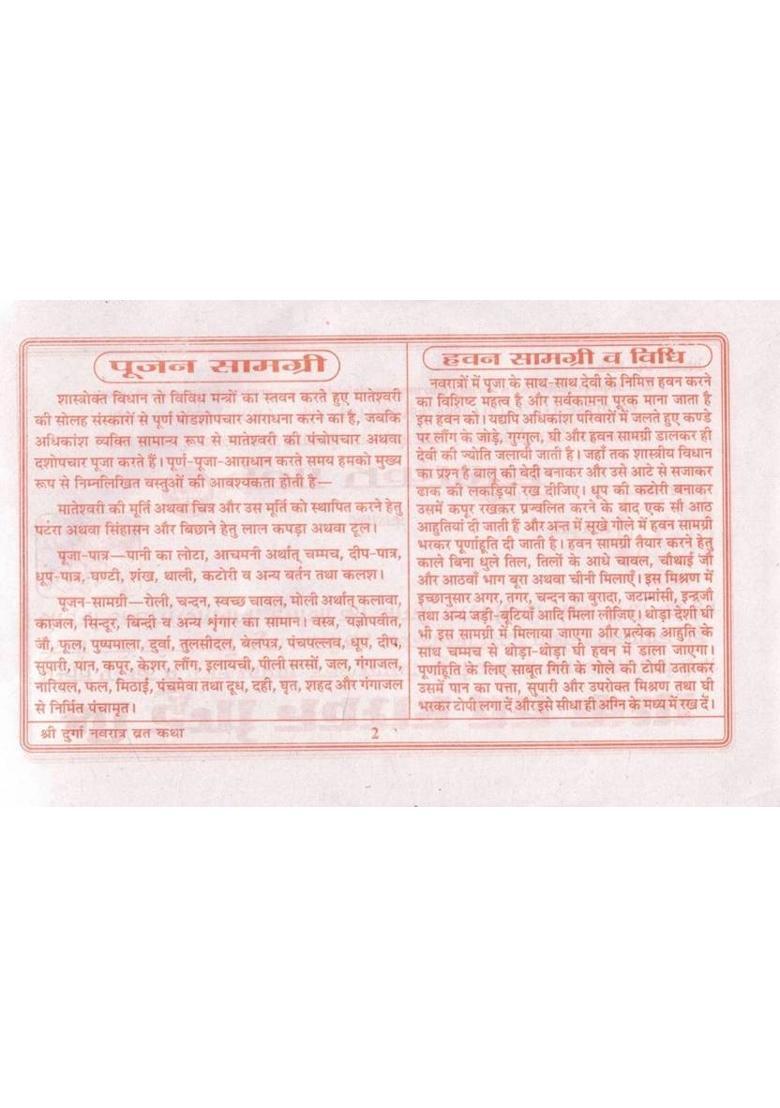 पूजन सामग्री
शास्त्रोक्त विधान तो विविध मन्त्रों का स्तवन करते हुए मातेश्वरी
की सोलह संस्कारों से पूर्ण षोडशोपचार आराधना करने का है, जबकि
अधिकांश व्यक्ति सामान्य रूप से मातेश्वरी की पंचोपचार अथवा
दशोपचार पूजा करते हैं। पूर्ण-पूजा-आराधान करते समय हमको मुख्य
रूप से निम्नलिखित वस्तुओं की आवश्यकता होती है—
मातेश्वरी की मूर्ति अथवा चित्र और उस मूर्ति को स्थापित करने हेतु
पटरा अथवा सिंहासन और बिछाने हेतु लाल कपड़ा अथवा टूल।
पूजा-पात्र—पानी का लोटा, आचमनी अर्थात् चम्मच, दीप-पात्र,
धूप-पात्र, घण्टी, शंख, थाली, कटोरी व अन्य बर्तन तथा कलश।
पूजन-सामग्री—रोली, चन्दन, स्वच्छ चावल, मोली अर्थात् कलावा,
काजल, सिन्दूर, बिन्दी व अन्य शृंगार का सामान। वस्त्र, यज्ञोपवीत,
जौ, फूल, पुष्पमाला, दुर्वा, तुलसीदल, बेलपत्र, पंचपल्लव, धूप, दीप,
सुपारी, पान, कपूर, केशर, लौंग, इलायची, पीली सरसों, जल, गंगाजल,
नारियल, फल, मिठाई, पंचमेवा तथा दूध, दही, घृत, शहद और गंगाजल
से निर्मित पंचामृत।
हवन सामग्री व विधि
नवरात्रों में पूजा के साथ-साथ देवी के निमित्त हवन करने
का विशिष्ट महत्व है और सर्वकामना पूरक माना जाता है
इस हवन को। यद्यपि अधिकांश परिवारों में जलते हुए कण्डे
पर लौंग के जोड़े, गुग्गुल, घी और हवन सामग्री डालकर ही
देवी की ज्योति जलायी जाती है। जहाँ तक शास्त्रीय विधान
का प्रश्न है बालू की वेदी बनाकर और उसे आटे से सजाकर
ढाक की लकड़ियाँ रख दीजिए। धूप की कटोरी बनाकर
उसमें कपूर रखकर प्रज्वलित करने के बाद एक सौ आठ
आहुतियाँ दी जाती हैं और अन्त में सूखे गोले में हवन सामग्री
भरकर पूर्णाहूति दी जाती है। हवन सामग्री तैयार करने हेतु
काले बिना धुले तिल, तिलों के आधे चावल, चौथाई जौ
और आठवाँ भाग बूरा अथवा चीनी मिलाएँ। इस मिश्रण में
इच्छानुसार अगर, तगर, चन्दन का बुरादा, जटामांसी, इन्द्रजौ
तथा अन्य जड़ी-बूटियाँ आदि मिला लीजिए। थोड़ा देशी घी
भी इस सामग्री में मिलाया जाएगा और प्रत्येक आहुति के
साथ चम्मच से थोड़ा-थोड़ा घी हवन में डाला जाएगा।
पूर्णाहूति के लिए साबूत गिरी के गोले की टोपी उतारकर
उसमें पान का पत्ता, सुपारी और उपरोक्त मिश्रण तथा घी
भरकर टोपी लगा दें और इसे सीधा ही अग्नि के मध्य में रख दें।
श्री दुर्गा नवरात्र व्रत कथा 2